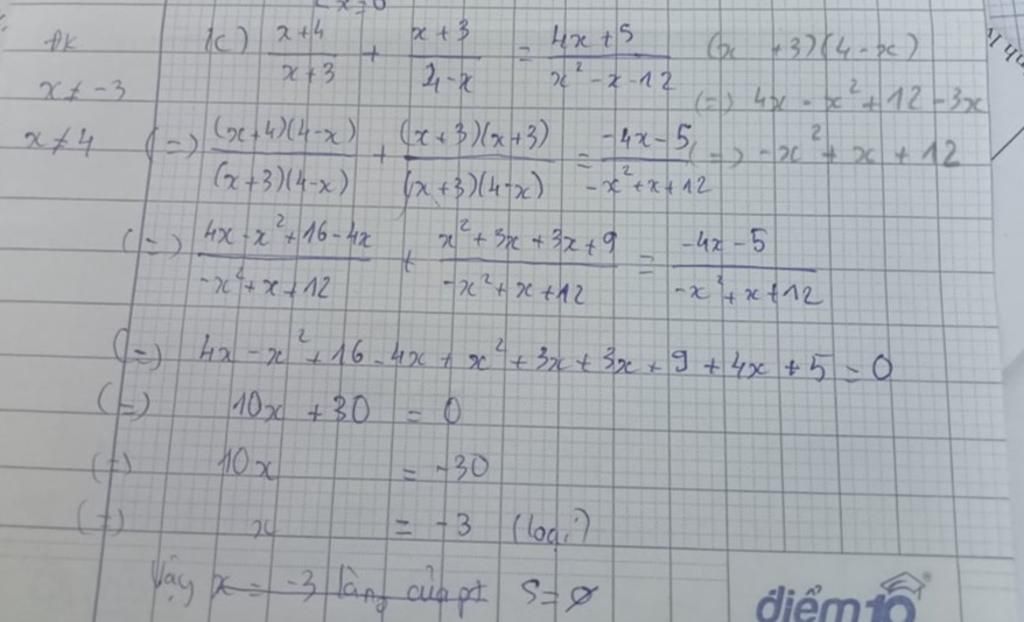 x = 0
ĐK
x ≠ -3
x ≠ 4
k) (x+4)/(x+3) + (x+3)/(4-x) = (4x+5)/(x²-x-12)
(x +3)(4-x)
(=) 4x - x² + 12 - 3x
=> -x² + x + 12
(=) ((x+4)(4-x))/((x+3)(4-x)) + ((x+3)(x+3))/((x+3)(4-x)) = (-4x-5)/(-x²+x+12)
(=) (4x-x²+16-4x)/(-x²+x+12) + (x²+3x+3x+9)/(-x²+x+12) = (-4x-5)/(-x²+x+12)
(=) 4x-x²+16-4x+x²+3x+3x+9+4x+5=0
(=) 10x +30 = 0
(=) 10x = -30
(=) x = -3 (loại)
Vậy x = -3 là ng của pt S=∅
điểm10